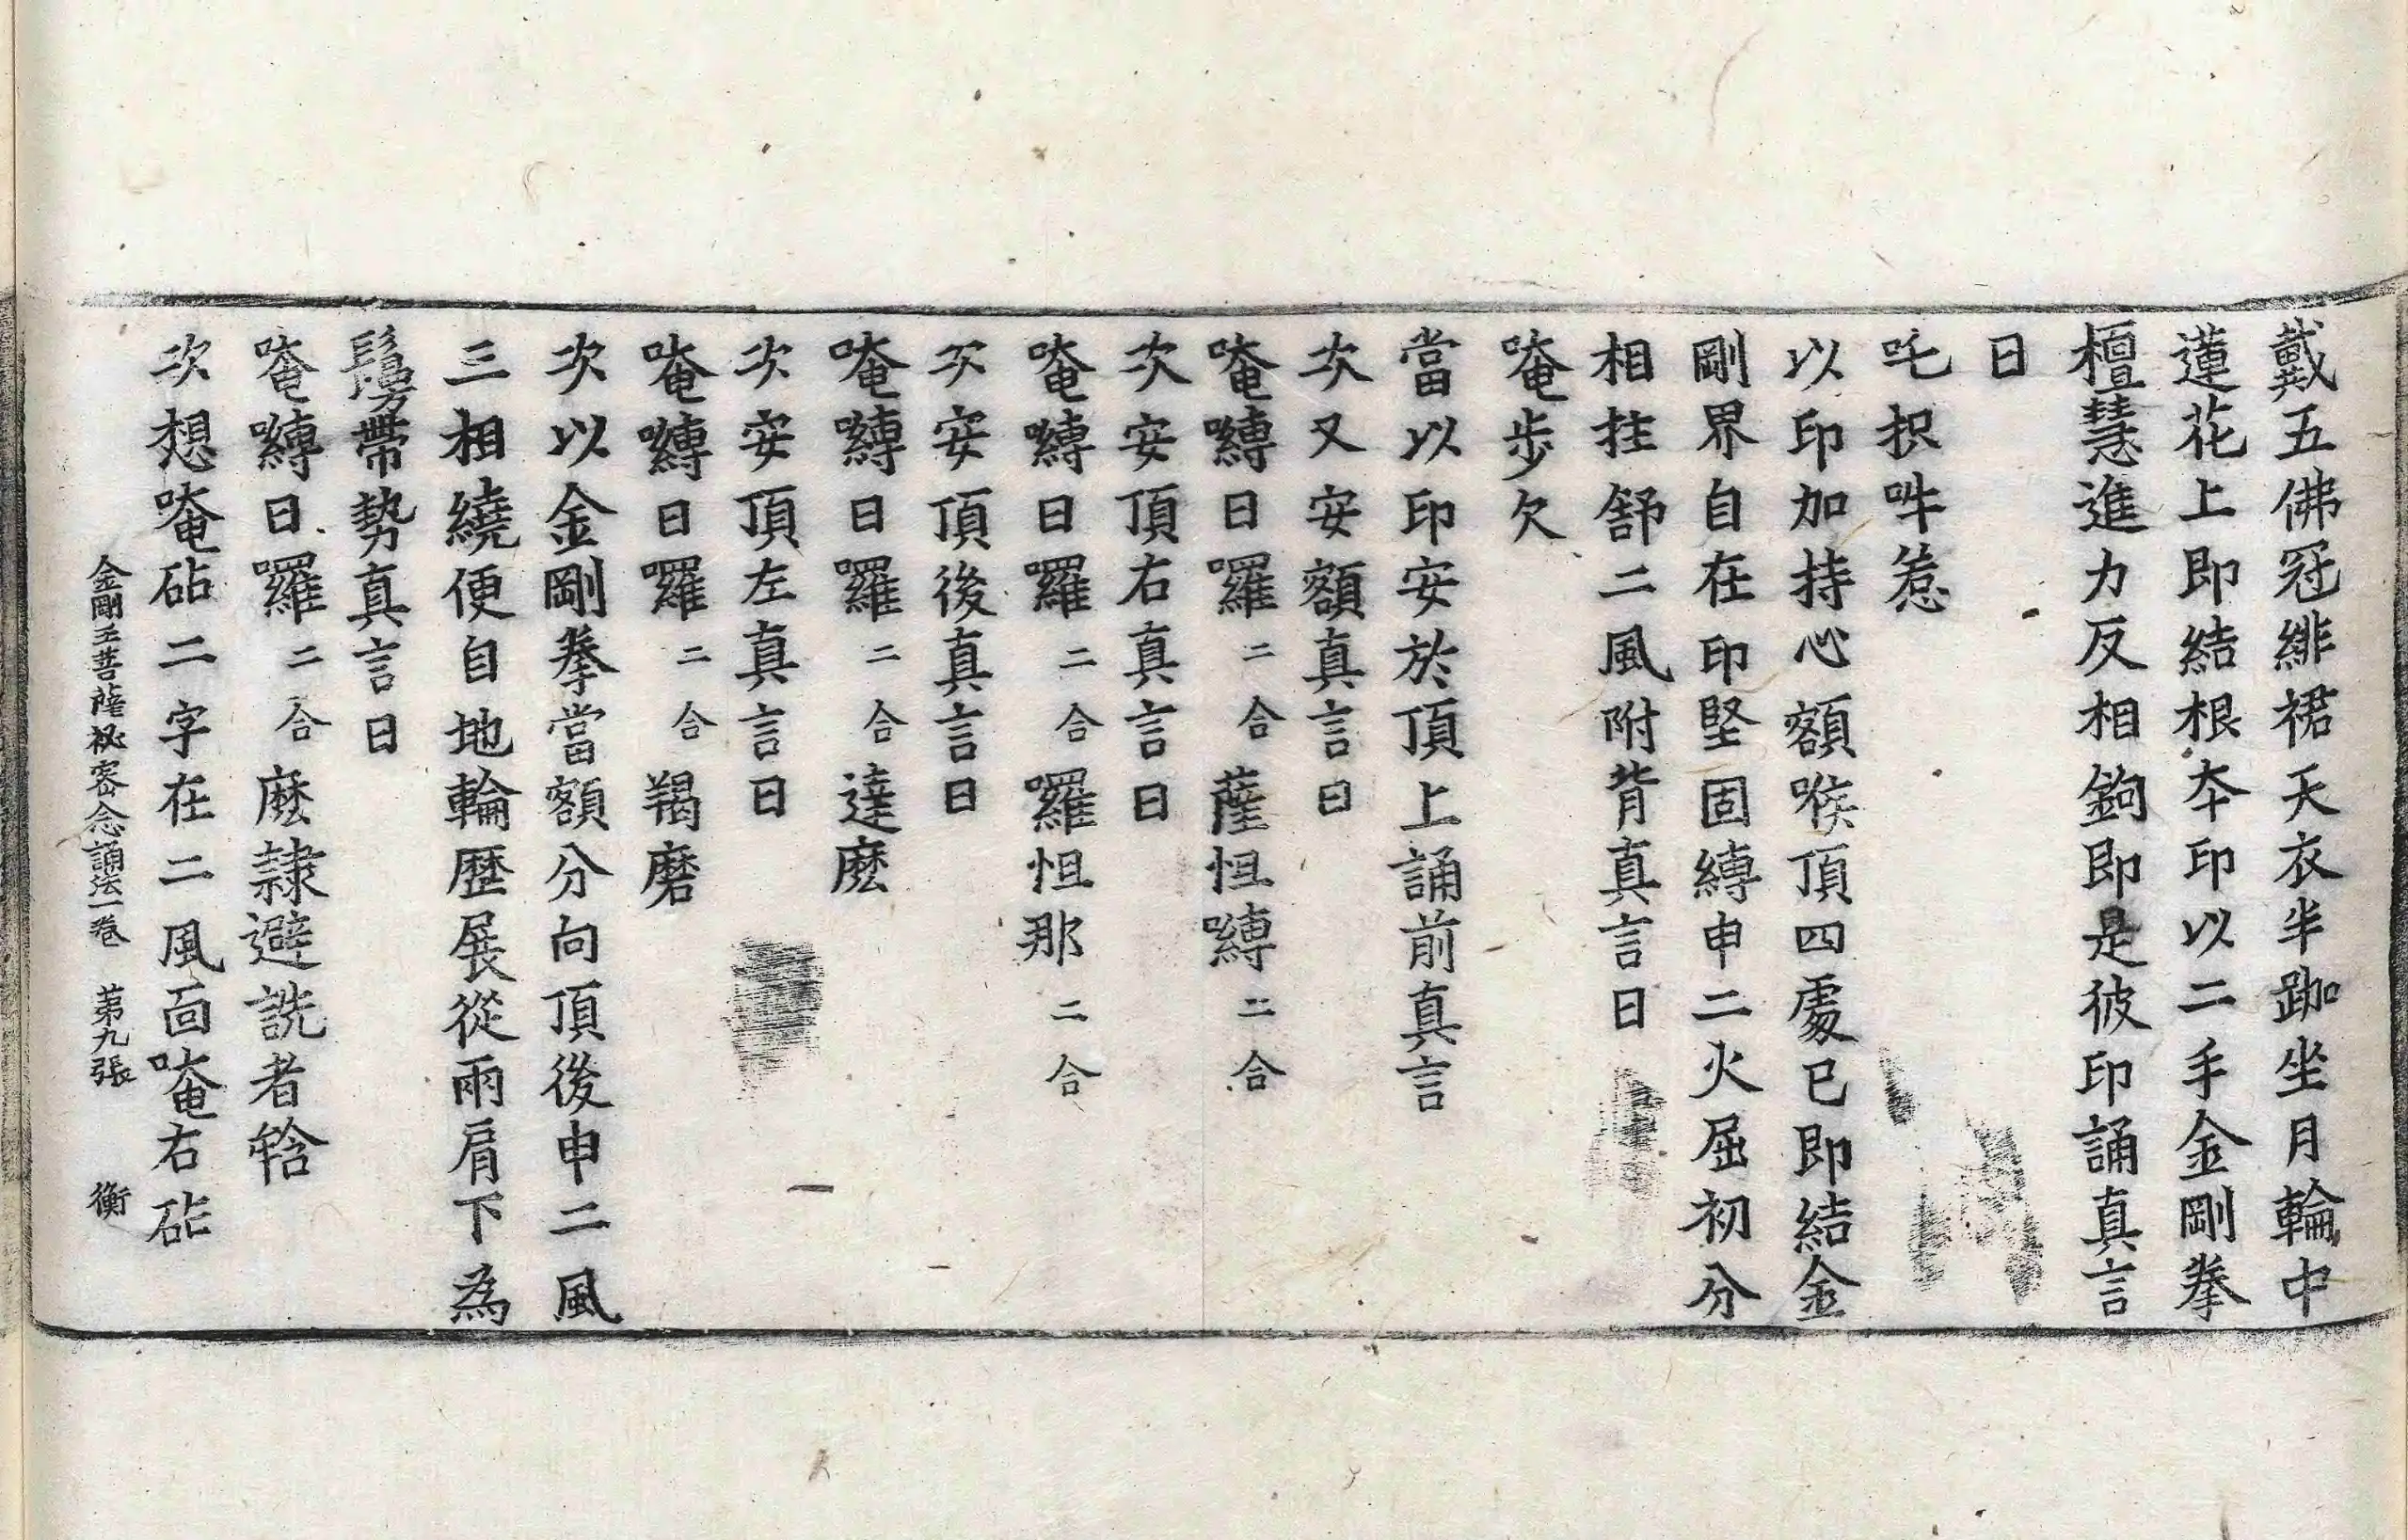 戴五佛冠緋裙天衣半跏坐月輪中
蓮花上即結根本印以二手金剛拳
檀慧進力反相鉤即是彼印誦真言
曰
吒枳吽惹
以印加持心額喉頂四處已即結金
剛界自在印堅固縛申二火屈初分
相拄舒二風附背真言曰
唵步欠
當以印安於頂上誦前真言
次又安額真言曰
唵嚩日囉二合薩怛嚩二合
次安頂右真言曰
唵嚩日囉二合囉怛那二合
次安頂後真言曰
唵嚩日囉二合達麽
次安頂左真言曰
唵嚩日囉二合羯磨
次以金剛拳當額分向頂後申二風
三相繞便自地輪歷展從兩肩下為
鬘帶勢真言曰
唵嚩日囉二合麽隸避詵者𤚥
次想唵砧二字在二風面唵右砧
金剛王菩薩祕密念誦法一卷 第九張 衡